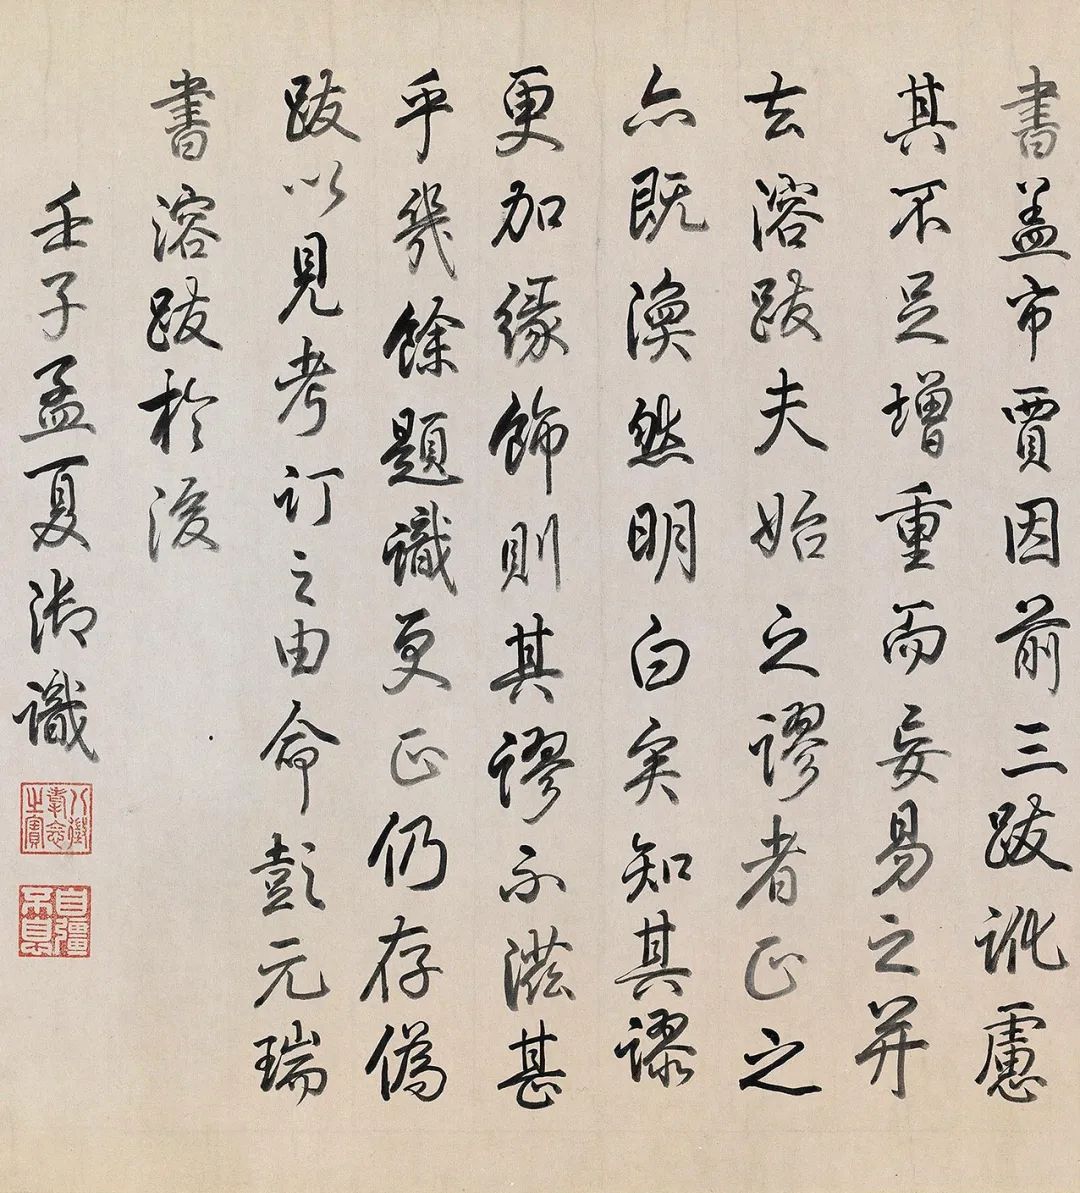 書蓋市賈因前三跋訛慮
其不足增重而妄易之并
去溶跋夫始之謬者正之
亦既渙然明白矣知其謬
更加緣飾則其謬不滋甚
乎幾餘題識更正仍存偽
跋以見考訂之由命彭元瑞
書溶跋於後
壬子孟夏御識
八徵耄念之寶
自彊不息